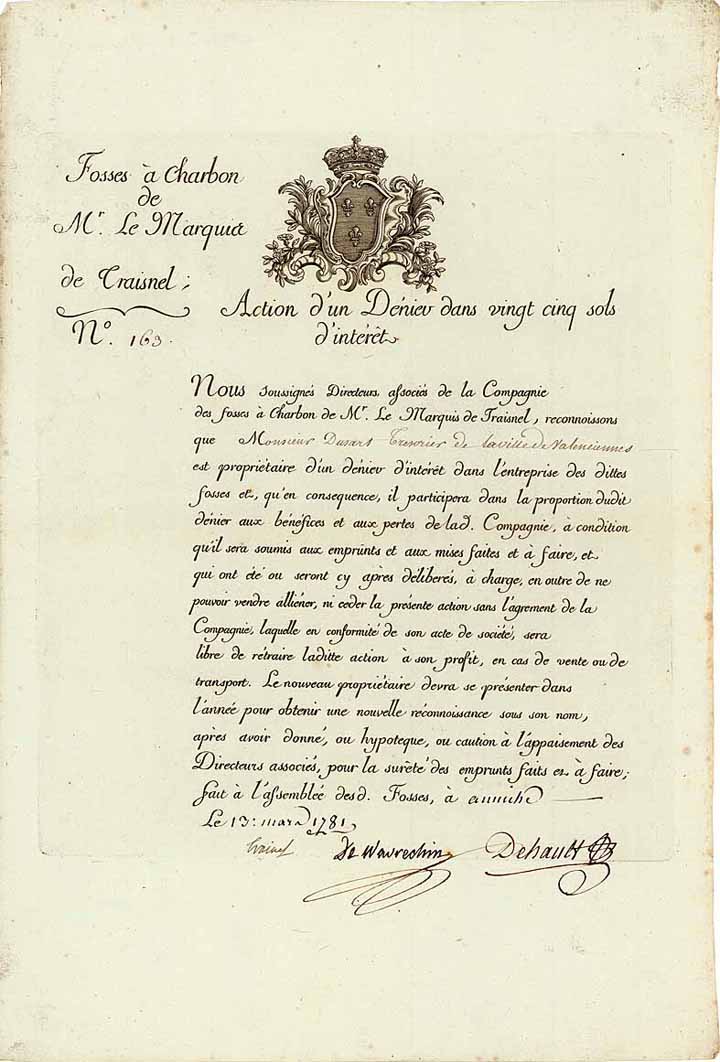 Fosses à Charbon
de
Mr. Le Marquis
de Traisnel;
No. 163.
Action d'un Dénier dans vingt cinq sols
d'intérêt
Nous soussignés Directeurs associés de la Compagnie
des fosses à Charbon de Mr. Le Marquis de Traisnel, reconnoissons
que Monsieur Dusart Tresorier de la ville de Valenciennes
est propriétaire d'un dénier d'intérêt dans l'entreprise des dittes
fosses et, qu'en consequence, il participera dans la proportion dudit
dénier aux bénéfices et aux pertes de lad. Compagnie, à condition
qu'il sera soumis aux emprunts et aux mises faites et à faire, et
qui ont été ou seront cy après délibérés, à charge, en outre de ne
pouvoir vendre alliéner, ni ceder la présente action sans l'agrement de la
Compagnie, laquelle en conformité de son acte de société, sera
libre de rétraire laditte action à son profit, en cas de vente ou de
transport. Le nouveau propriétaire devra se présenter dans
l'année pour obtenir une nouvelle réconnoissance sous son nom,
après avoir donné, ou hypoteque, ou caution à l'appaisement des
Directeurs associés, pour la sureté des emprunts faits et à faire;
fait à l'assemblée desd. Fosses, à aniche
Le 13. mars 1781
Traisnel De Wavrechin Dehault